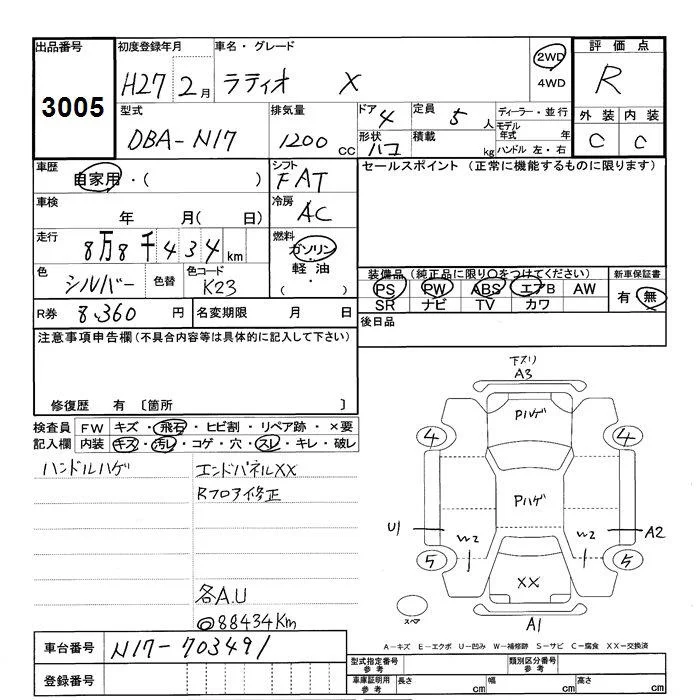 出品番号 3005
初度登録年月 H27 2月
車名・グレード ラティオ X
2WD
4WD
評価点 R
型式 DBA-N17
排気量 1200 cc
ドア 4
形状 ハコ
定員 5人
積載 kg
ディーラー・並行
モデル年式 年
ハンドル 左・右
外装 内装
C C
車歴 自家用・( )
シフト FAT
セールスポイント (正常に機能するものに限ります)
車検 年 月( 日)
冷房 AC
走行 8万8千434km
燃料 ガソリン・軽油・( )
色 シルバー 色替
色コード K23
装備品 (純正品に限り○をつけてください)
新車保証書
PS PW ABS エアB AW
SR ナビ TV カワ
有・無
R券 8,360円
名変期限 月 日
後日品
注意事項申告欄 (不具合内容等は具体的に記入して下さい)
修復歴 有 〔箇所 〕
検査員記入欄
FW キズ・飛石・ヒビ割・リペア跡・×要
内装 キズ・汚レ・コゲ・穴・スレ・キレ・破レ
ハンドルハゲ
エンドパネルXX
Rフロア修正
各A.U
@88434Km
下スリ
A3
Pハゲ
4 4
Pハゲ
U1 A2
W2 W2
5 5
XX
スペア
A1
車台番号 N17-703491
A-キズ E-エクボ U-凹み W-補修跡 S-サビ C-腐食 XX-交換済
登録番号
型式指定番号 参考
類別区分番号 参考
車庫証明用 参考
長さ cm 幅 cm 高さ cm